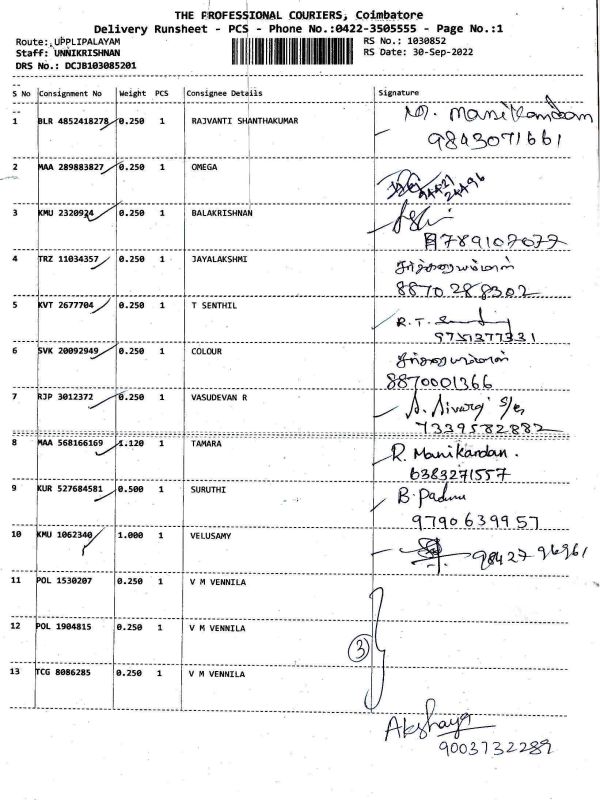 THE PROFESSIONAL COURIERS, Coimbatore
Delivery Runsheet - PCS - Phone No.:0422-3505555 - Page No.:1
Route:.UPPLIPALAYAM
RS No.: 1030852
Staff: UNNIKRISHNAN
RS Date: 30-Sep-2022
DRS No.: DCJB103085201
S No Consignment No Weight PCS Consignee Details Signature
1 BLR 4852418278 0.250 1 RAJVANTI SHANTHAKUMAR M. Manikandan
9843071661
2 MAA 289883827 0.250 1 OMEGA
3 KMU 2320924 0.250 1 BALAKRISHNAN
7789107077
4 TRZ 11034357 0.250 1 JAYALAKSHMI
8870288302
5 KVT 2677704 0.250 1 T SENTHIL R.T.
9751377331
6 SVK 20092949 0.250 1 COLOUR
8870001366
7 RJP 3012372 0.250 1 VASUDEVAN R
7339582882
8 MAA 568166169 1.120 1 TAMARA R. Manikandan.
6383271557
9 KUR 527684581 0.500 1 SURUTHI B. Padma
9790639957
10 KMU 1062340 1.000 1 VELUSAMY 98427 96961
11 POL 1530207 0.250 1 V M VENNILA
12 POL 1904815 0.250 1 V M VENNILA
3
13 TCG 8086285 0.250 1 V M VENNILA
Akshaya
9003732289